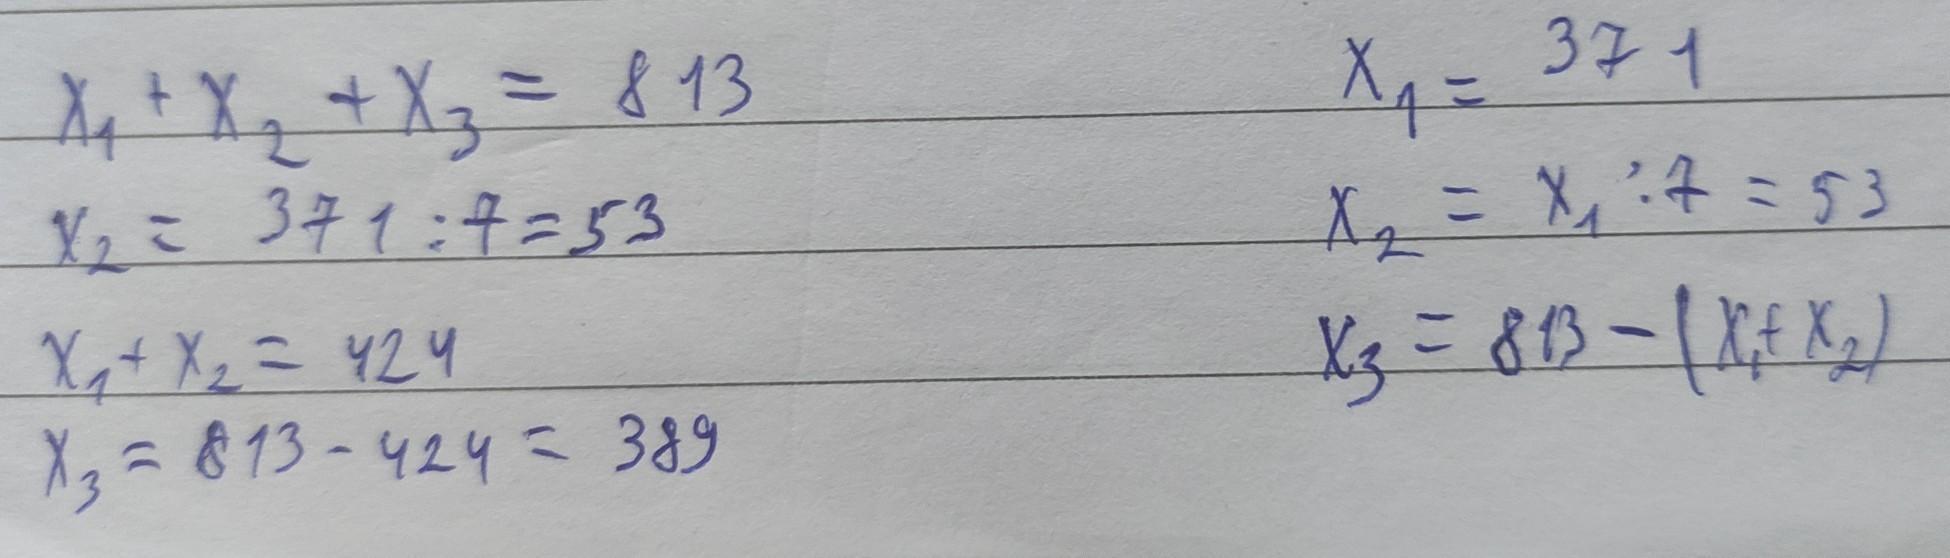 X₁ + X₂ + X₃ = 813
X₂ = 371 : 7 = 53
X₁ + X₂ = 424
X₃ = 813 - 424 = 389
X₁ = 371
X₂ = X₁ : 7 = 53
X₃ = 813 - (X₁ + X₂)